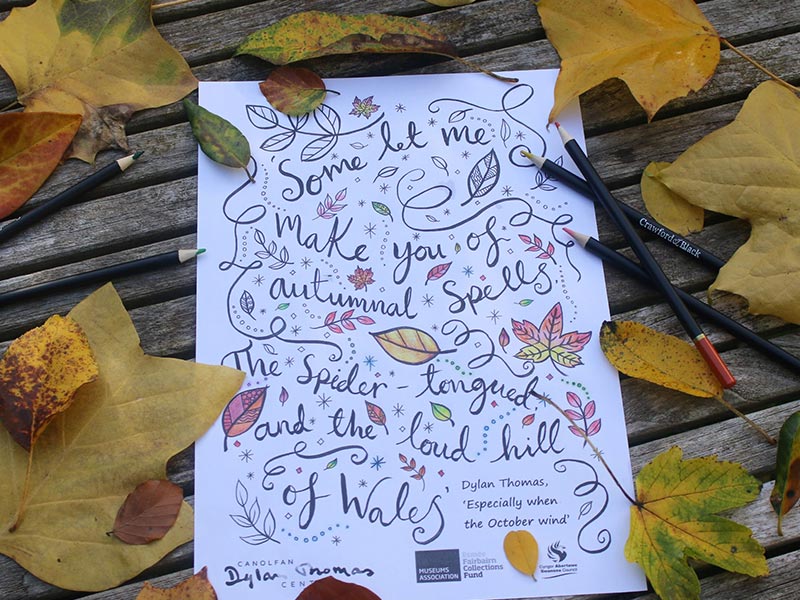 'Some let me
make you of
autumnal spells,
The spider-tongued,
and the loud hill
of Wales'
Dylan Thomas,
'Especially when
the October wind'
CANOLFAN
Dylan Thomas
CENT
MUSEUMS
ASSOCIATION
Fairbairn
Collections
Fund
Cyngor Abertawe
Swansea Council
Crawford&Black